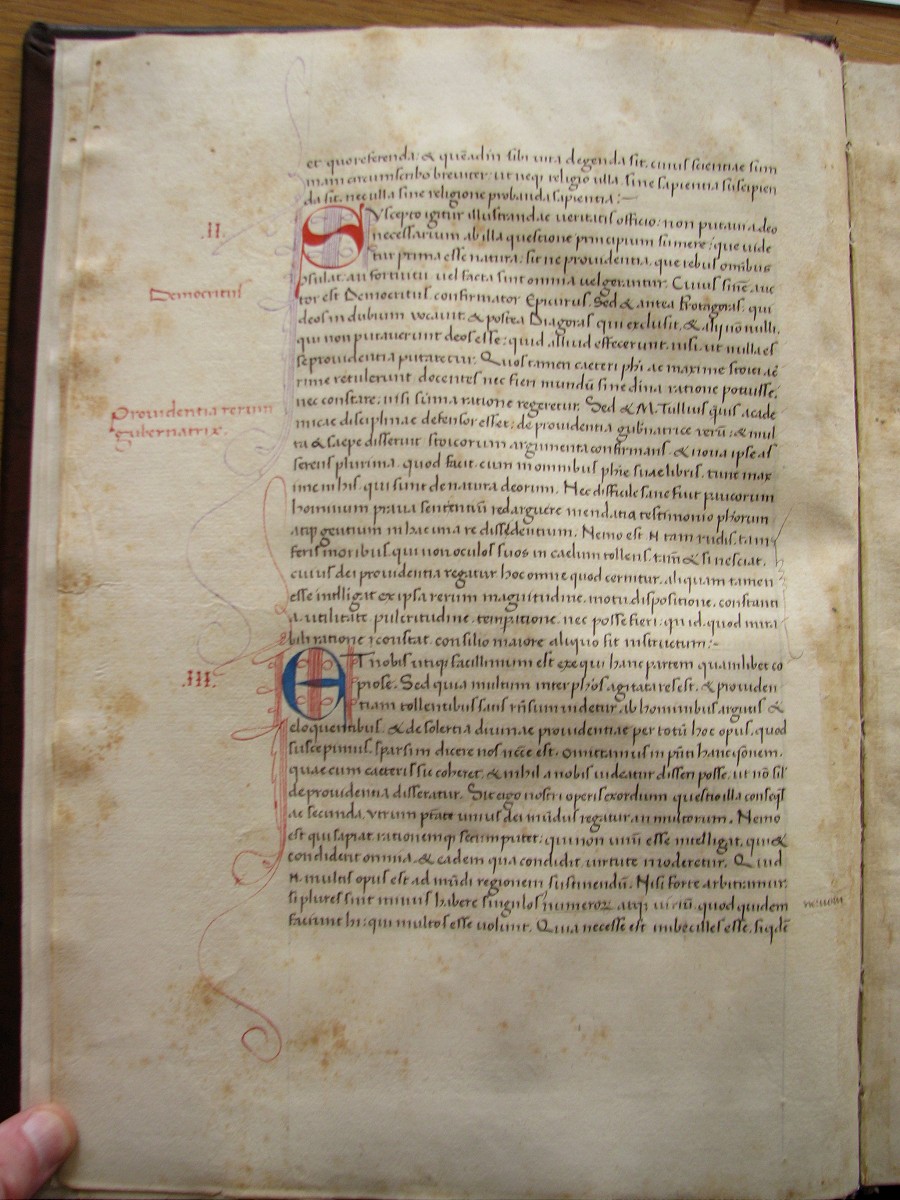 et quo referenda: & quẽadm̃ sibi uita degenda sit. cuius scientiae sum
mam circumscribo breuiter: ut neq; religio ulla. sine sapientia suscipien
da sit. nec ulla sine religione probanda sapientia:—
.II.
Suscepto igitur illustrandae ueritatis officio: non putaui adeo
necessarium ab illa questione principium sumere: que uide
tur prima esse natura: sit ne prouidentia. que rebus omībus
cōsulat. an fortuitu uel facta sint omnia uel gerantur. Cuius sine. auc
Democritus
tor est Democritus. confirmator Epicurus. Sed & antea Protagoras. qui
deos in dubium uocauit. & postea Diagoras qui exclusit. & alij nō nulli.
qui non putauerunt deos esse: quid aliud effecerunt. nisi. ut nulla es
se prouidentia putaretur. Quos tamen caeteri phi ac maxime stoici ac
rime retulerunt docentes nec fieri mundū sine diuina ratione potuisse.
nec constare. nisi sūma ratione regeretur. Sed & M. Tullius quis acade
Prouidentia rerum
gubernatrix.
micae disciplinae defensor esset: de prouidentia gubnatrice rerū: & mul
ta & saepe disseruit stoicorum argumenta confirmans. & noua ipse as
serens plurima. quod facit. cum in omnibus phie suae libris. tunc max
ime in his. qui sunt de natura deorum. Nec difficile sane fuit paucorum
hominum praua sententiū redarguere mendatia testimonio phorum
atq; gentium in hac una re dissidentium. Nemo est n tam rudis. tam
feris moribus qui non oculos suos in caelum tollens. tam̃ & si nesciat.
cuius dei prouidentia regatur hoc omne quod cernitur. aliquam tamen
esse intelligat ex ipsa rerum magnitudine. motu dispositione. constanti
a. utilitate pulcritudine. tempatione. nec posse fieri: quid. quod mira
bili ratione constat. consilio maiore aliquo sit instructum:-
.III.
Et nobis utiq; facillimum est exequi hanc partem quamlibet co
piose. Sed quia multum inter phos agitata res est. & prouiden
tiam tollentibus satis rñsum uidetur. ab hominibus argutis &
eloquentibus. & de solertia diuinae prouidentiae per totū hoc opus. quod
suscepimus. sparsim dicere nos necē est. omittamus in pñti hanc q̄onem.
quae cum caeteris sic coheret. & nihil a nobis uideatur disseri posse. ut nō sil'
de prouidentia disseratur. Sit ergo nostri operis exordium questio illa conseq̄s
ac secunda. utrum ptāte unius dei mūdus regatur an multorum. Nemo
est qui sapiat. rationemq; secum putet: qui non unū esse intelligat. qui &
condiderit omnia. & eadem qua condidit uirtute moderetur. Quid
n. multis opus est ad mūdi regionem sustinendū. Nisi forte arbitramur.
si plures sint minus habere singulos numeroꝝ atq; uiriū. quod quidem
faciunt hi: qui multos esse uolunt. Quia necesse est imbecilles esse. siqdē